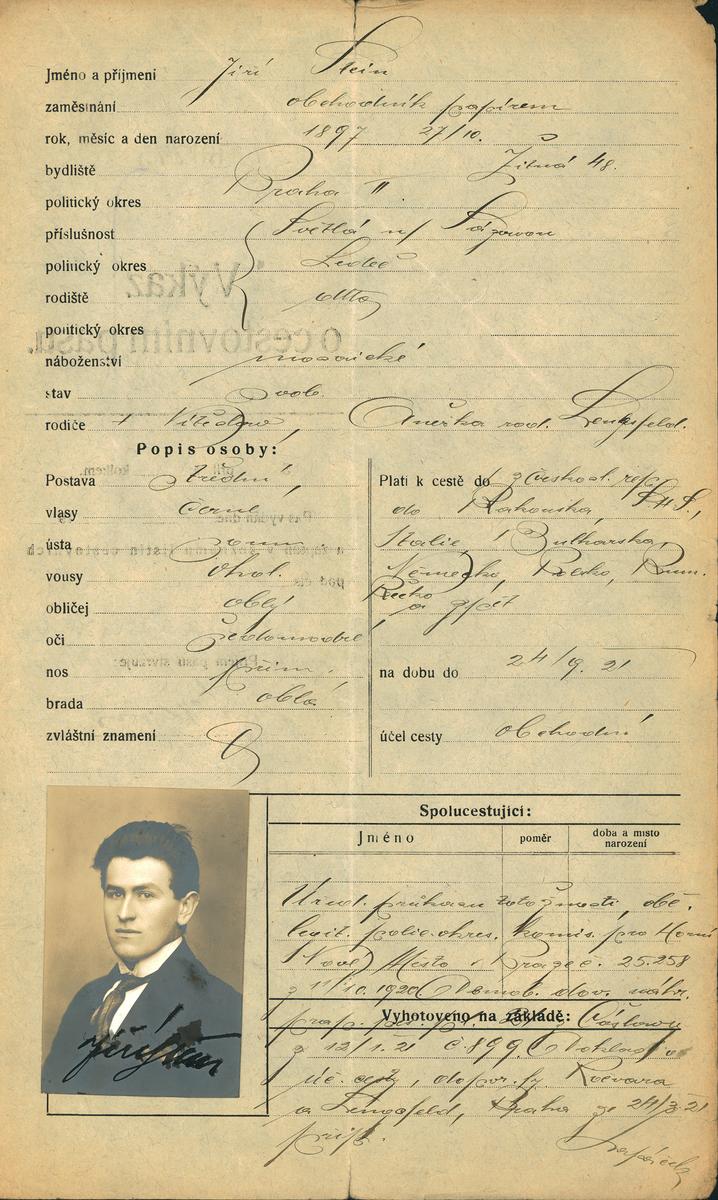 Jméno a příjmení Jiří Stein
zaměstnání obchodník papírem
rok, měsíc a den narození 1897 27/10.
bydliště Žitná 48.
politický okres Praha II
příslušnost Světlá n/ Sázavou
politický okres Ledeč
rodiště dtto
politický okres
náboženství mosaické
stav svob.
rodiče Anežka roz. Lengsfeld.
Popis osoby:
Postava střední
vlasy černé
ústa
vousy ohol.
obličej oblý
oči šedomodré
nos přim.
brada oblá
zvláštní znamení
Platí k cestě do z českosl. rep.
do Rakouska, S.H.S.,
Italie, Bulharska,
Německo, Polsko, Rum.
Řecko
a zpět
na dobu do 24/9. 21
účel cesty obchodní
Spolucestující:
Jméno poměr doba a místo narození
Úřed. průkazu totožnosti,
legit. polic. okres. komis. pro Horní
Nové Město v Praze č. 25.258
z 11/10. 1920
Vyhotoveno na základě:
z 12/1. 21 č. 899. Doklad o
úč. cesty, dopor. fy Kočvara
a Lengsfeld, Praha ze 24/3. 21